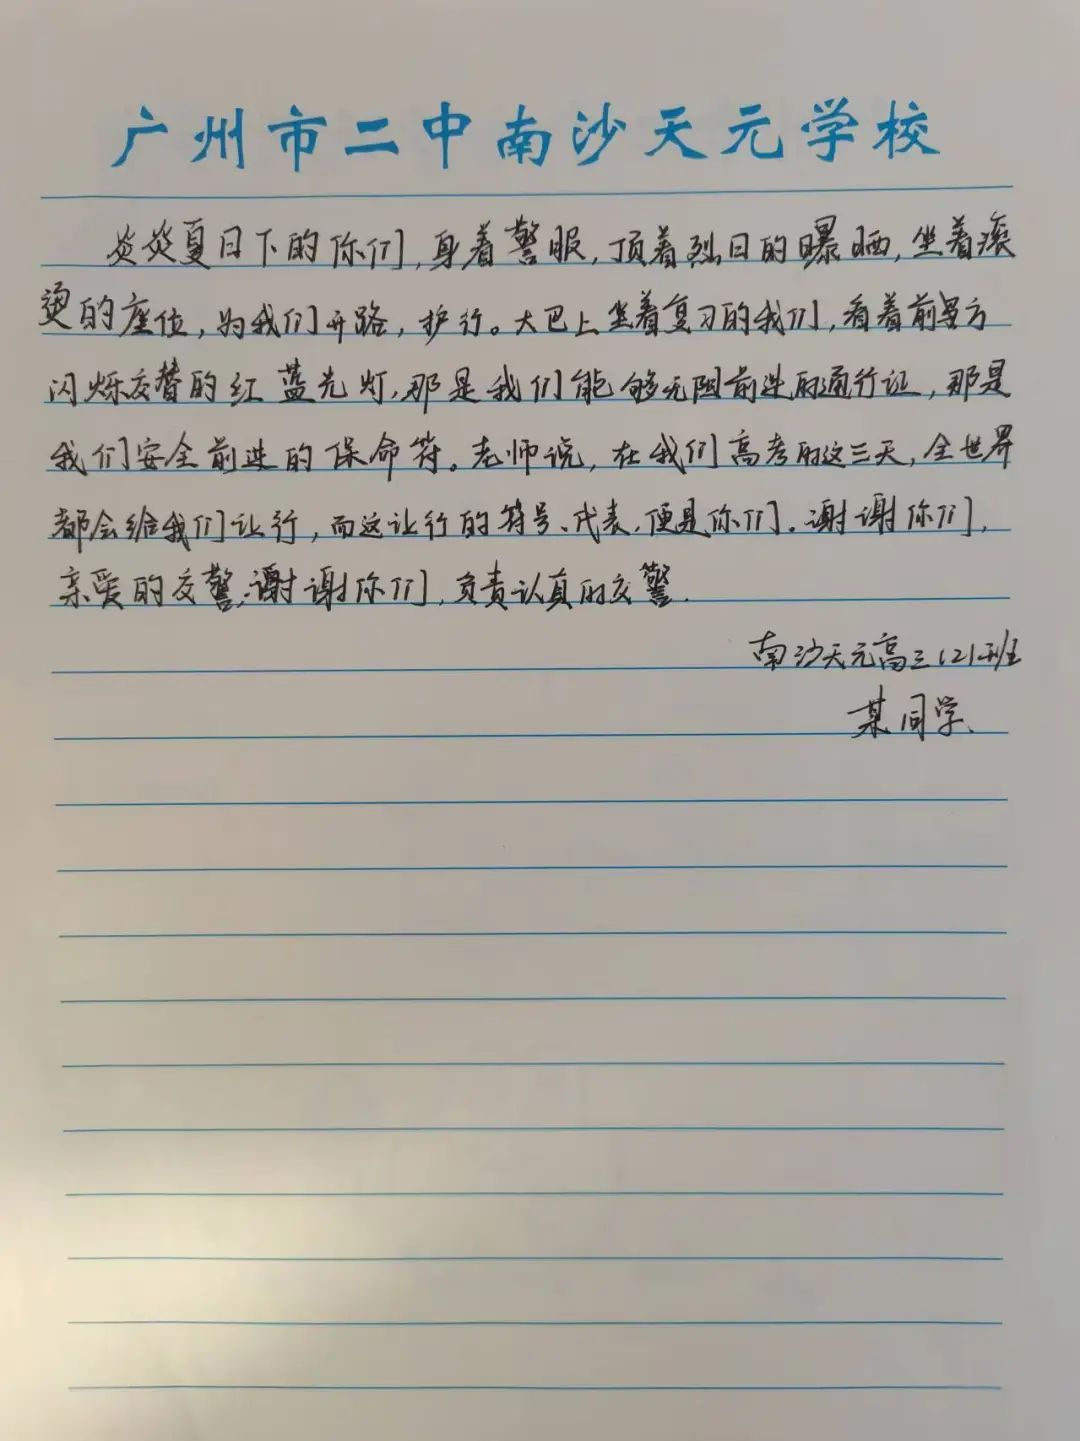 广州市二中南沙天元学校
炎炎夏日下的你们,身着警服,顶着烈日的曝晒,坐着滚
烫的座位,为我们开路,护行。大巴上坐着复习的我们,看着前方
闪烁交替的红蓝光灯,那是我们能够无阻前进的通行证,那是
我们安全前进的保命符。老师说,在我们高考的这三天,全世界
都会给我们让行,而这让行的符号、代表,便是你们.谢谢你们,
亲爱的交警,谢谢你们,负责认真的交警.
南沙天元高三(2)班
某同学.